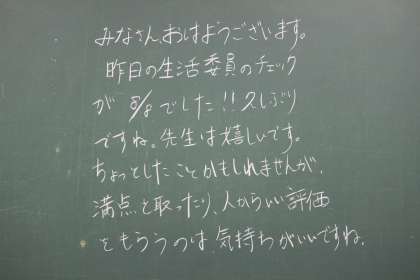 みなさん、おはようございます。
昨日の生活委員のチェック
が 8/8 でした!! 久しぶり
ですね。先生は嬉しいです。
ちょっとしたことかもしれませんが、
満点を取ったり、人からいい評価
をもらうのは、気持ちがいいですね。